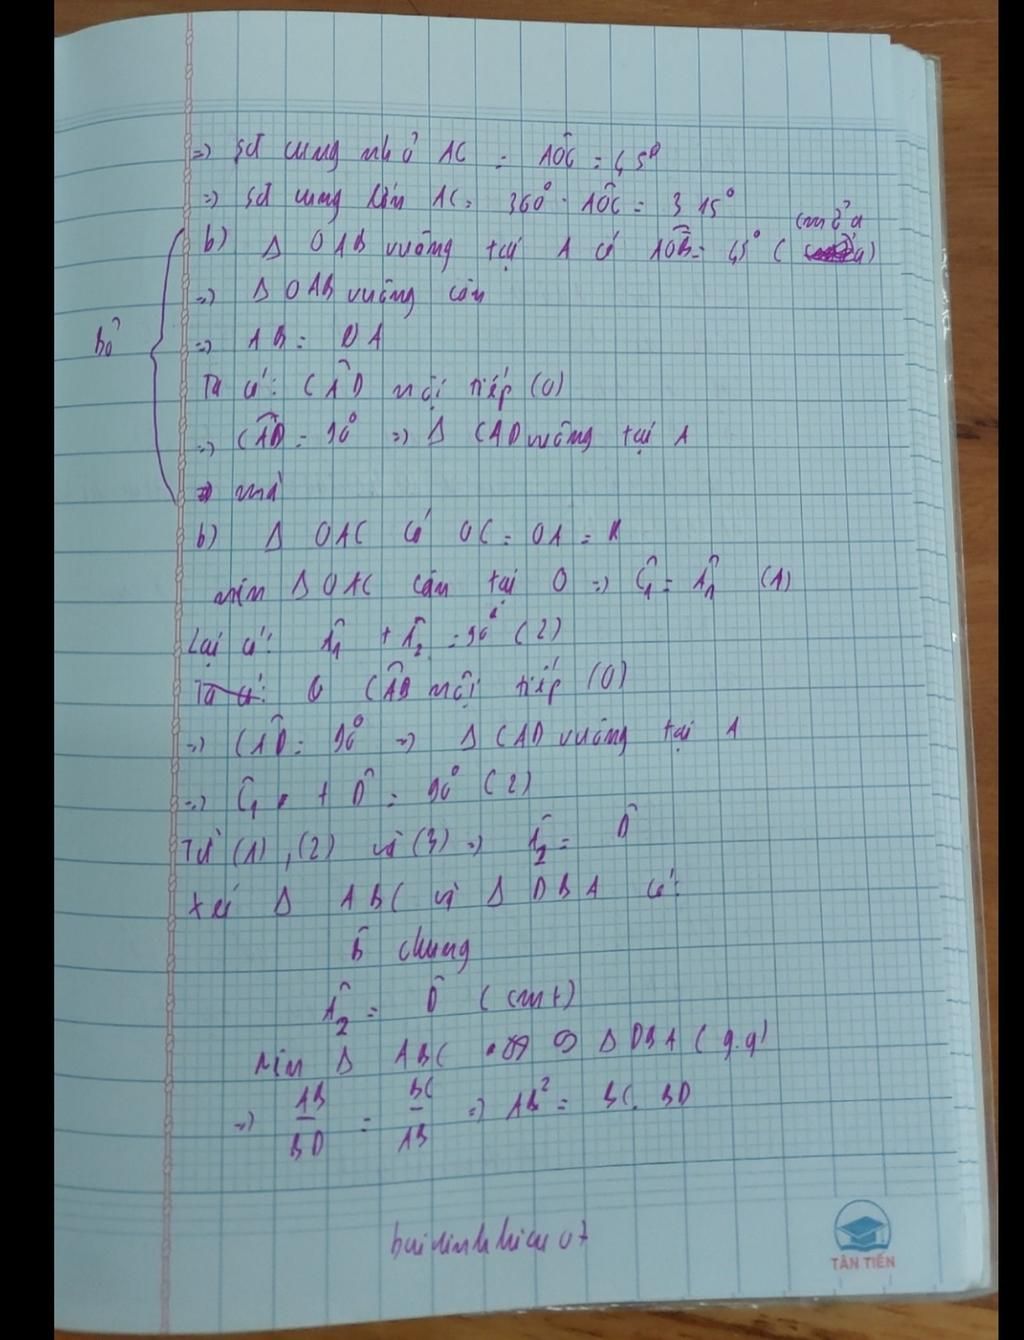 => sđ cung nhỏ AC = AÔC = 45°
=> sđ cung lớn AC = 360° - AÔC = 315°
cm ở a
b) Δ OAB vuông tại A có AÔB = 45° ( )
=> Δ OAB vuông cân
bỏ
=> AB = OA
Ta có: CÂD nội tiếp (O)
=> CÂD = 90° => Δ CAD vuông tại A
=> mà
b) Δ OAC có OC = OA = R
nên Δ OAC cân tại O => Ĉ1 = Â1 (1)
Lại có: Â1 + Â2 = 90° (2)
Ta có: CÂD nội tiếp (O)
=> CÂD = 90° => Δ CAD vuông tại A
=> Ĉ1 + D̂ = 90° (2)
Từ (1), (2) và (3) => Â2 = D̂
Xét Δ ABC và Δ DBA có:
B̂ chung
Â2 = D̂ (cmt)
Nên Δ ABC ∽ Δ DBA (g.g)
=> AB/BD = BC/AB => AB² = BC. BD
buidinhhieu07
TÂN TIẾN